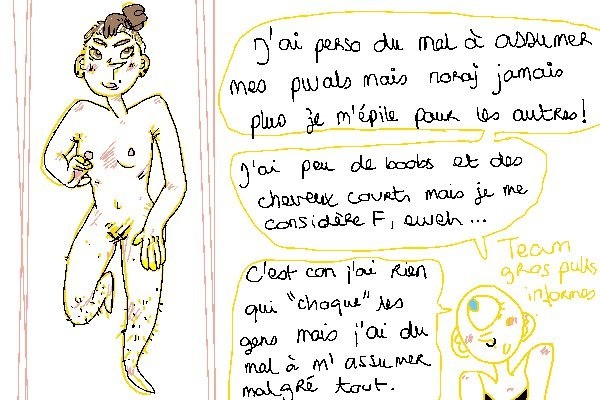 J'ai perso du mal à assumer
mes pwals mais noraj jamais
plus je m'épile pour les autres!
J'ai peu de boobs et des
cheveux courts mais je me
considère F, eweh...
Team
gros pulls
informes
C'est con j'ai rien
qui "choque" les
gens mais j'ai du
mal à m'assumer
malgré tout.